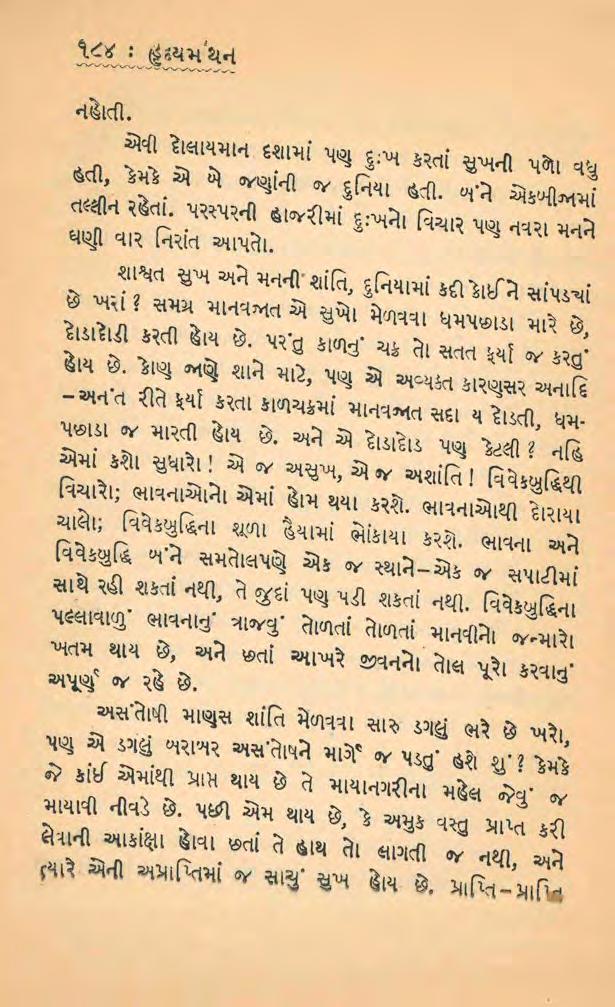 ૧૮૪ : હૃદયમંથન
નહોતી.
એવી દોલાયમાન દશામાં પણ દુઃખ કરતાં સુખની પળો વધુ
હતી, કેમકે એ બે જણાંની જ દુનિયા હતી. બંને એકબીજામાં
તલ્લીન રહેતાં. પરસ્પરની હાજરીમાં દુઃખનો વિચાર પણ નવરા મનને
ઘણી વાર નિરાંત આપતો.
શાશ્વત સુખ અને મનની શાંતિ, દુનિયામાં કદી કોઈને સાંપડ્યાં
છે ખરાં? સમગ્ર માનવજાત એ સુખો મેળવવા ધમપછાડા મારે છે,
દોડાદોડી કરતી હોય છે. પરંતુ કાળનું ચક્ર તો સતત ફર્યા જ કરતું
હોય છે. કોણ જાણે શાને માટે, પણ એ અવ્યક્ત કારણસર અનાદિ
–અનંત રીતે ફર્યા કરતા કાળચક્રમાં માનવજાત સદા ય દોડતી, ધમ-
પછાડા જ મારતી હોય છે. અને એ દોડાદોડ પણ કેટલી? નહિ
એમાં કશો સુધારો! એ જ અસુખ, એ જ અશાંતિ! વિવેકબુદ્ધિથી
વિચારો; ભાવનાઓનો એમાં હોમ થયા કરશે. ભાવનાઓથી દોરાયા
ચાલો; વિવેકબુદ્ધિના શૂળા હૈયામાં ભોંકાયા કરશે. ભાવના અને
વિવેકબુદ્ધિ બંને સમતોલપણે એક જ સ્થાને–એક જ સપાટીમાં
સાથે રહી શકતાં નથી, તે જુદાં પણ પડી શકતાં નથી. વિવેકબુદ્ધિના
પલ્લાવાળું ભાવનાનું ત્રાજવું તોળતાં તોળતાં માનવીનો જન્મારો
ખતમ થાય છે, અને છતાં આખરે જીવનનો તોલ પૂરો કરવાનું
અપૂર્ણ જ રહે છે.
અસંતોષી માણસ શાંતિ મેળવવા સારુ ડગલું ભરે છે ખરો,
પણ એ ડગલું બરાબર અસંતોષને માર્ગે જ પડતું હશે શું? કેમકે
જે કાંઈ એમાંથી પ્રાપ્ત થાય છે તે માયાનગરીના મહેલ જેવું જ
માયાવી નીવડે છે. પછી એમ થાય છે, કે અમુક વસ્તુ પ્રાપ્ત કરી
લેવાની આકાંક્ષા હોવા છતાં તે હાથ તો લાગતી જ નથી, અને
ત્યારે એની અપ્રાપ્તિમાં જ સાચું સુખ હોય છે. પ્રાપ્તિ–પ્રાપ્તિ